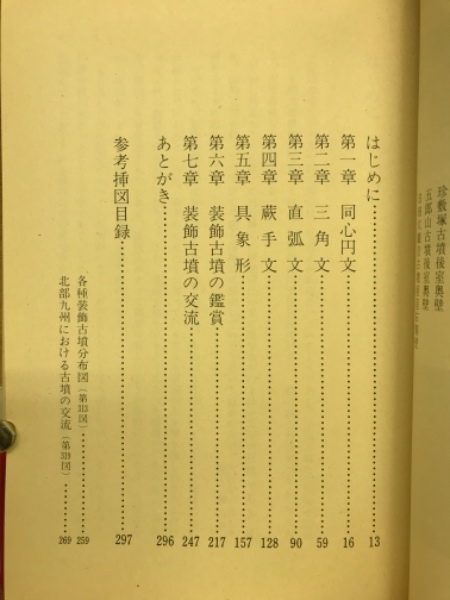 珍敷塚古墳後室奥壁
五郎山古墳後室奥壁
はじめに……13
第一章 同心円文……16
第二章 三角文……59
第三章 直弧文……90
第四章 蕨手文……128
第五章 具象形……157
第六章 装飾古墳の鑑賞……217
第七章 装飾古墳の交流……247
あとがき……296
参考挿図目録……297
各種装飾古墳分布図(第313図)……259
北部九州における古墳の交流(第319図)……269